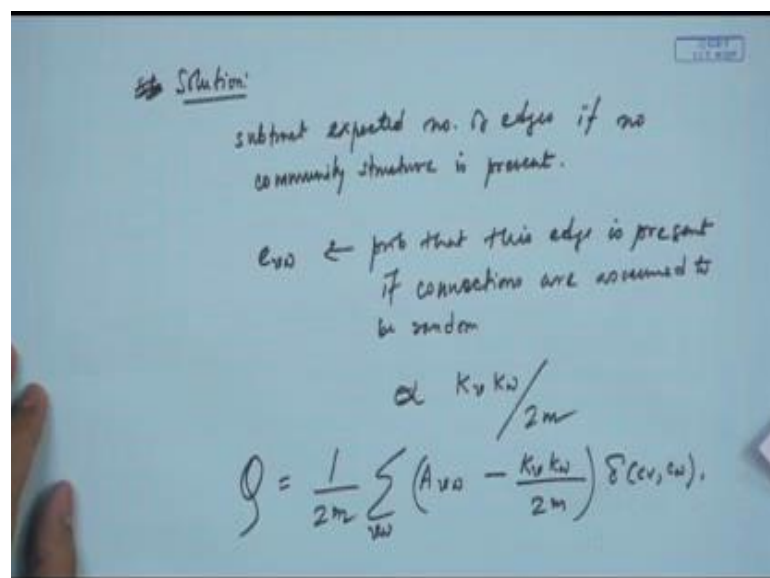 Solution:
subtract expected no. of edges if no
community structure is present.
e_vw ← prob that this edge is present
if connections are assumed to
be random
∝ K_v K_w / 2m
Q = 1/2m Σ_vw (A_vw − K_v K_w / 2m) δ(c_v, c_w).